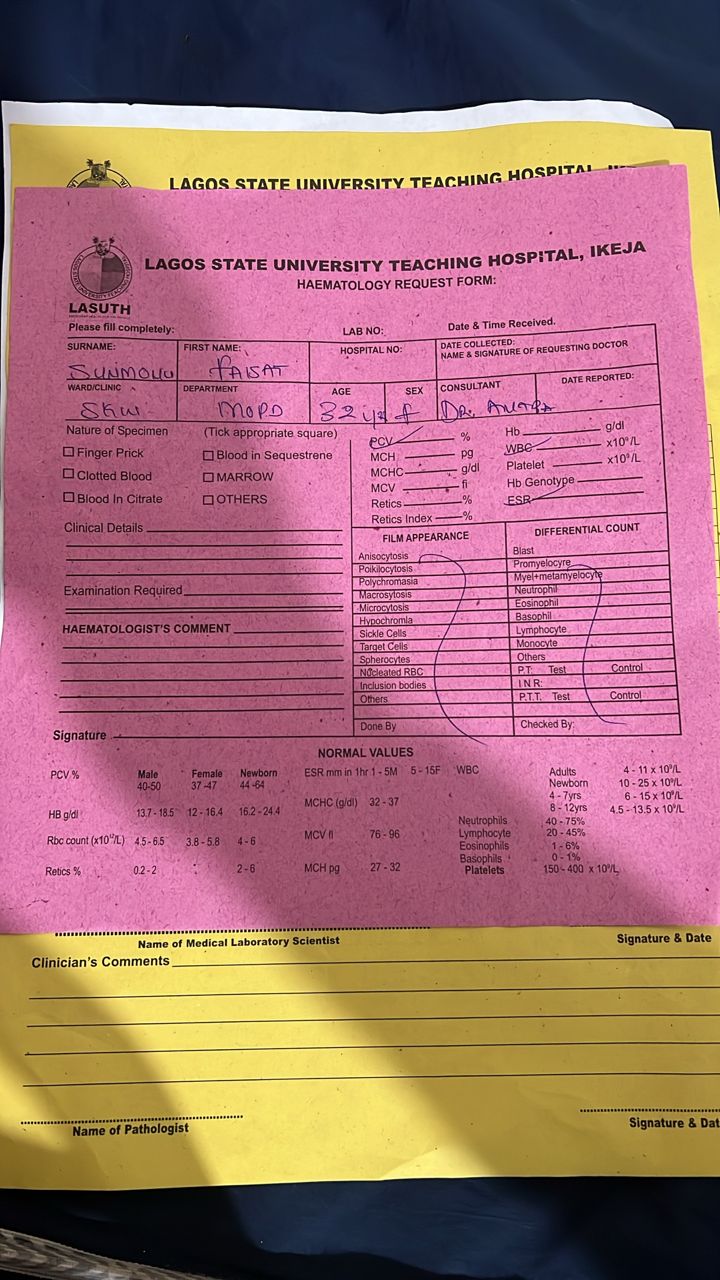 LAGOS STATE UNIVERSITY TEACHING HOSPITAL,
LAGOS STATE UNIVERSITY TEACHING HOSPITAL, IKEJA
HAEMATOLOGY REQUEST FORM:
LASUTH
Please fill completely: LAB NO: Date & Time Received.
SURNAME: FIRST NAME: HOSPITAL NO: DATE COLLECTED:
NAME & SIGNATURE OF REQUESTING DOCTOR
SUNMONU FAISAT
WARD/CLINIC DEPARTMENT AGE SEX CONSULTANT DATE REPORTED:
MOPD 32 yrs f DR.
Nature of Specimen (Tick appropriate square)
Finger Prick Blood in Sequestrene
Clotted Blood MARROW
Blood In Citrate OTHERS
Clinical Details
Examination Required
HAEMATOLOGIST'S COMMENT
Signature
PCV % Hb g/dl
MCH pg WBC x10⁹/L
MCHC g/dl Platelet x10⁹/L
MCV fl Hb Genotype
Retics % ESR
Retics Index %
FILM APPEARANCE DIFFERENTIAL COUNT
Anisocytosis Blast
Poikilocytosis Promyelocyre
Polychromasia Myel+metamyelocyte
Macrosytosis Neutrophil
Microcytosis Eosinophil
Hypochromla Basophil
Sickle Cells Lymphocyte
Target Cells Monocyte
Spherocytes Others
Nucleated RBC P.T: Test Control
Inclusion bodies I N R:
Others P.T.T. Test Control
Done By Checked By:
NORMAL VALUES
PCV % Male Female Newborn ESR mm in 1hr 1 - 5M 5 - 15F WBC Adults 4 - 11 x 10⁹/L
40-50 37 -47 44 -64 Newborn 10 - 25 x 10⁹/L
MCHC (g/dl) 32 - 37 4 - 7yrs 6 - 15 x 10⁹/L
HB g/dl 13.7 - 18.5 12 - 16.4 16.2 - 24.4 8 - 12yrs 4.5 - 13.5 x 10⁹/L
Neutrophils 40 - 75%
Rbc count (x10¹²/L) 4.5 - 6.5 3.8 - 5.8 4 - 6 MCV fl 76 - 96 Lymphocyte 20 - 45%
Eosinophils 1 - 6%
Basophils 0 - 1%
Retics % 0.2 - 2 2 - 6 MCH pg 27 - 32 Platelets 150 - 400 x 10⁹/L
Name of Medical Laboratory Scientist Signature & Date
Clinician's Comments
Name of Pathologist Signature & Dat